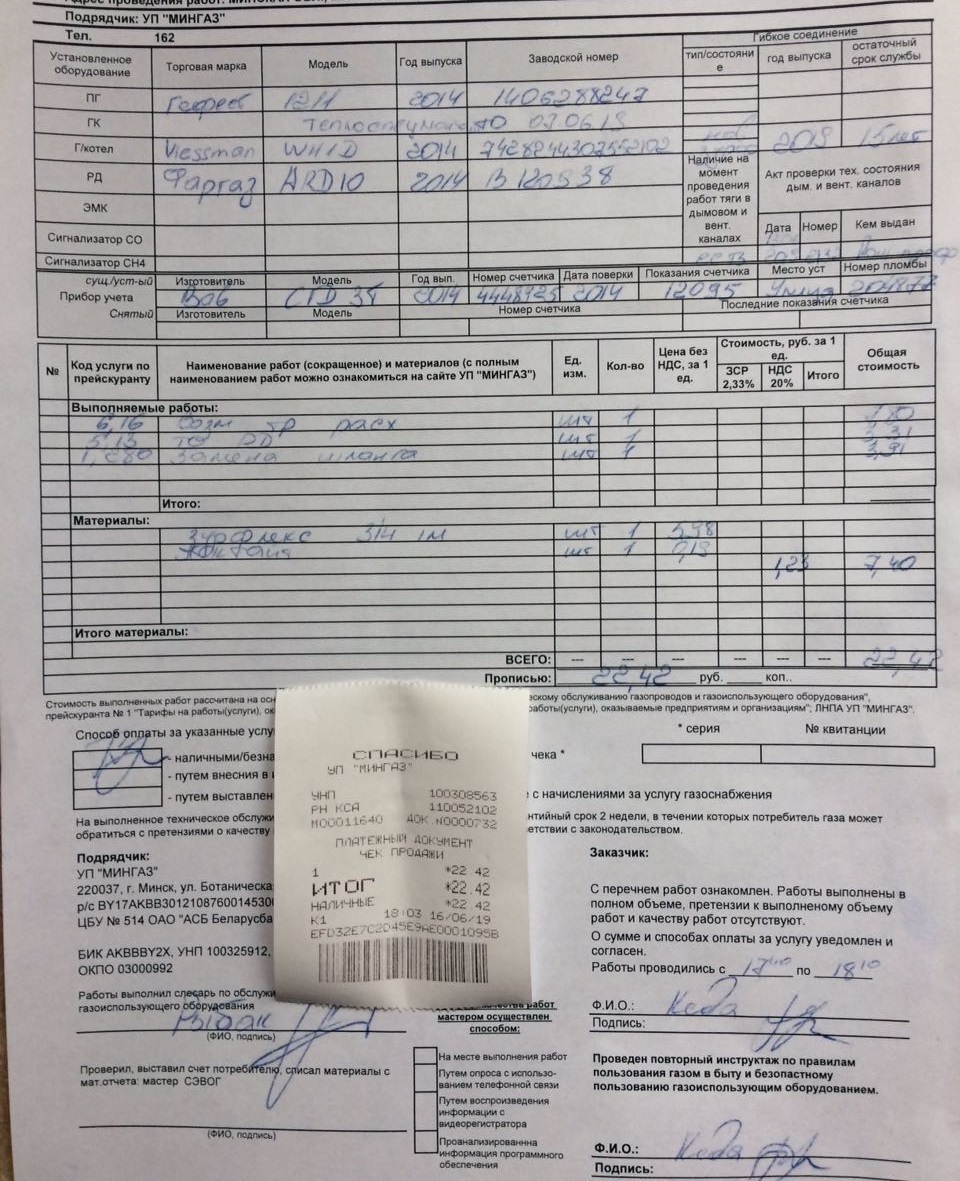 Подрядчик: УП "МИНГАЗ"
Тел. 162
Гибкое соединение
Установленное оборудование Торговая марка Модель Год выпуска Заводской номер тип/состояние год выпуска остаточный срок службы
ПГ Гефест 1211 2014 1406288247
ГК 03.06.19
Г/котел Viessman WH1D 2014 2019 15 лет
РД Фаргаз ARD10 2014
ЭМК
Наличие на момент проведения работ тяги в дымовом и вент. каналах
Акт проверки тех. состояния дым. и вент. каналов
Дата Номер Кем выдан
Сигнализатор СО
Сигнализатор СН4
есть
сущ./уст-ый Изготовитель Модель Год вып. Номер счетчика Дата поверки Показания счетчика Место уст Номер пломбы
Прибор учета 2014 2014 12095 Улица
Снятый Изготовитель Модель Номер счетчика Последние показания счетчика
№ Код услуги по прейскуранту Наименование работ (сокращенное) и материалов (с полным наименованием работ можно ознакомиться на сайте УП "МИНГАЗ") Ед. изм. Кол-во Цена без НДС, за 1 ед. Стоимость, руб. за 1 ед. Общая стоимость
ЗСР 2,33% НДС 20% Итого
Выполняемые работы:
6,16 Возм тр расх шт 1
5,13 ТО РД шт 1
Замена шланга шт 1 3,91
Итого:
Материалы:
3/4 1м шт 1 5,98
шт 1 0,19
1,23 7,40
Итого материалы:
ВСЕГО: --- --- --- --- --- --- 22,42
Прописью: 22,42 руб. _____ коп..
Стоимость выполненных работ рассчитана на осн
скому обслуживанию газопроводов и газоиспользующего оборудования",
прейскуранта № 1 "Тарифы на работы(услуги), ок
работы(услуги), оказываемые предприятиям и организациям"; ЛНПА УП "МИНГАЗ".
Способ оплаты за указанные услу
* серия № квитанции
- наличными/безна
чека *
- путем внесения в
- путем выставлен
с начислениями за услугу газоснабжения
На выполненное техническое обслужи
нтийный срок 2 недели, в течении которых потребитель газа может
обратиться с претензиями о качестве
етствии с законодательством.
СПАСИБО
УП "МИНГАЗ"
УНП 100308563
РН КСА 110052102
М00011640 ДОК.N0000732
ПЛАТЕЖНЫЙ ДОКУМЕНТ
ЧЕК ПРОДАЖИ
1 *22.42
ИТОГ *22.42
НАЛИЧНЫЕ *22.42
К1 18:03 16/06/19
EFD32E7C2D45E9AE0001095B
Подрядчик:
УП "МИНГАЗ"
220037, г. Минск, ул. Ботаническа
р/с BY17AKBB30121087600145300
ЦБУ № 514 ОАО "АСБ Беларусба
БИК AKBBBY2X, УНП 100325912,
ОКПО 03000992
Работы выполнил слесарь по обслужи
газоиспользующего оборудования
Рыбак
(ФИО, подпись)
Проверил, выставил счет потребителю, списал материалы с
мат.отчета: мастер СЭВОГ
(ФИО, подпись)
работ
мастером осуществлен
способом:
На месте выполнения работ
Путем опроса с использо-
ванием телефонной связи
Путем воспроизведения
информации с
видеорегистратора
Проанализированнна
информация программного
обеспечения
Заказчик:
С перечнем работ ознакомлен. Работы выполнены в
полном объеме, претензии к выполненому объему
работ и качеству работ отсутствуют.
О сумме и способах оплаты за услугу уведомлен и
согласен.
Работы проводились с 17 40 по 18 10
Ф.И.О.: Кеда
Подпись:
Проведен повторный инструктаж по правилам
пользования газом в быту и безопастному
пользованию газоиспользующим оборудованием.
Ф.И.О.: Кеда
Подпись: